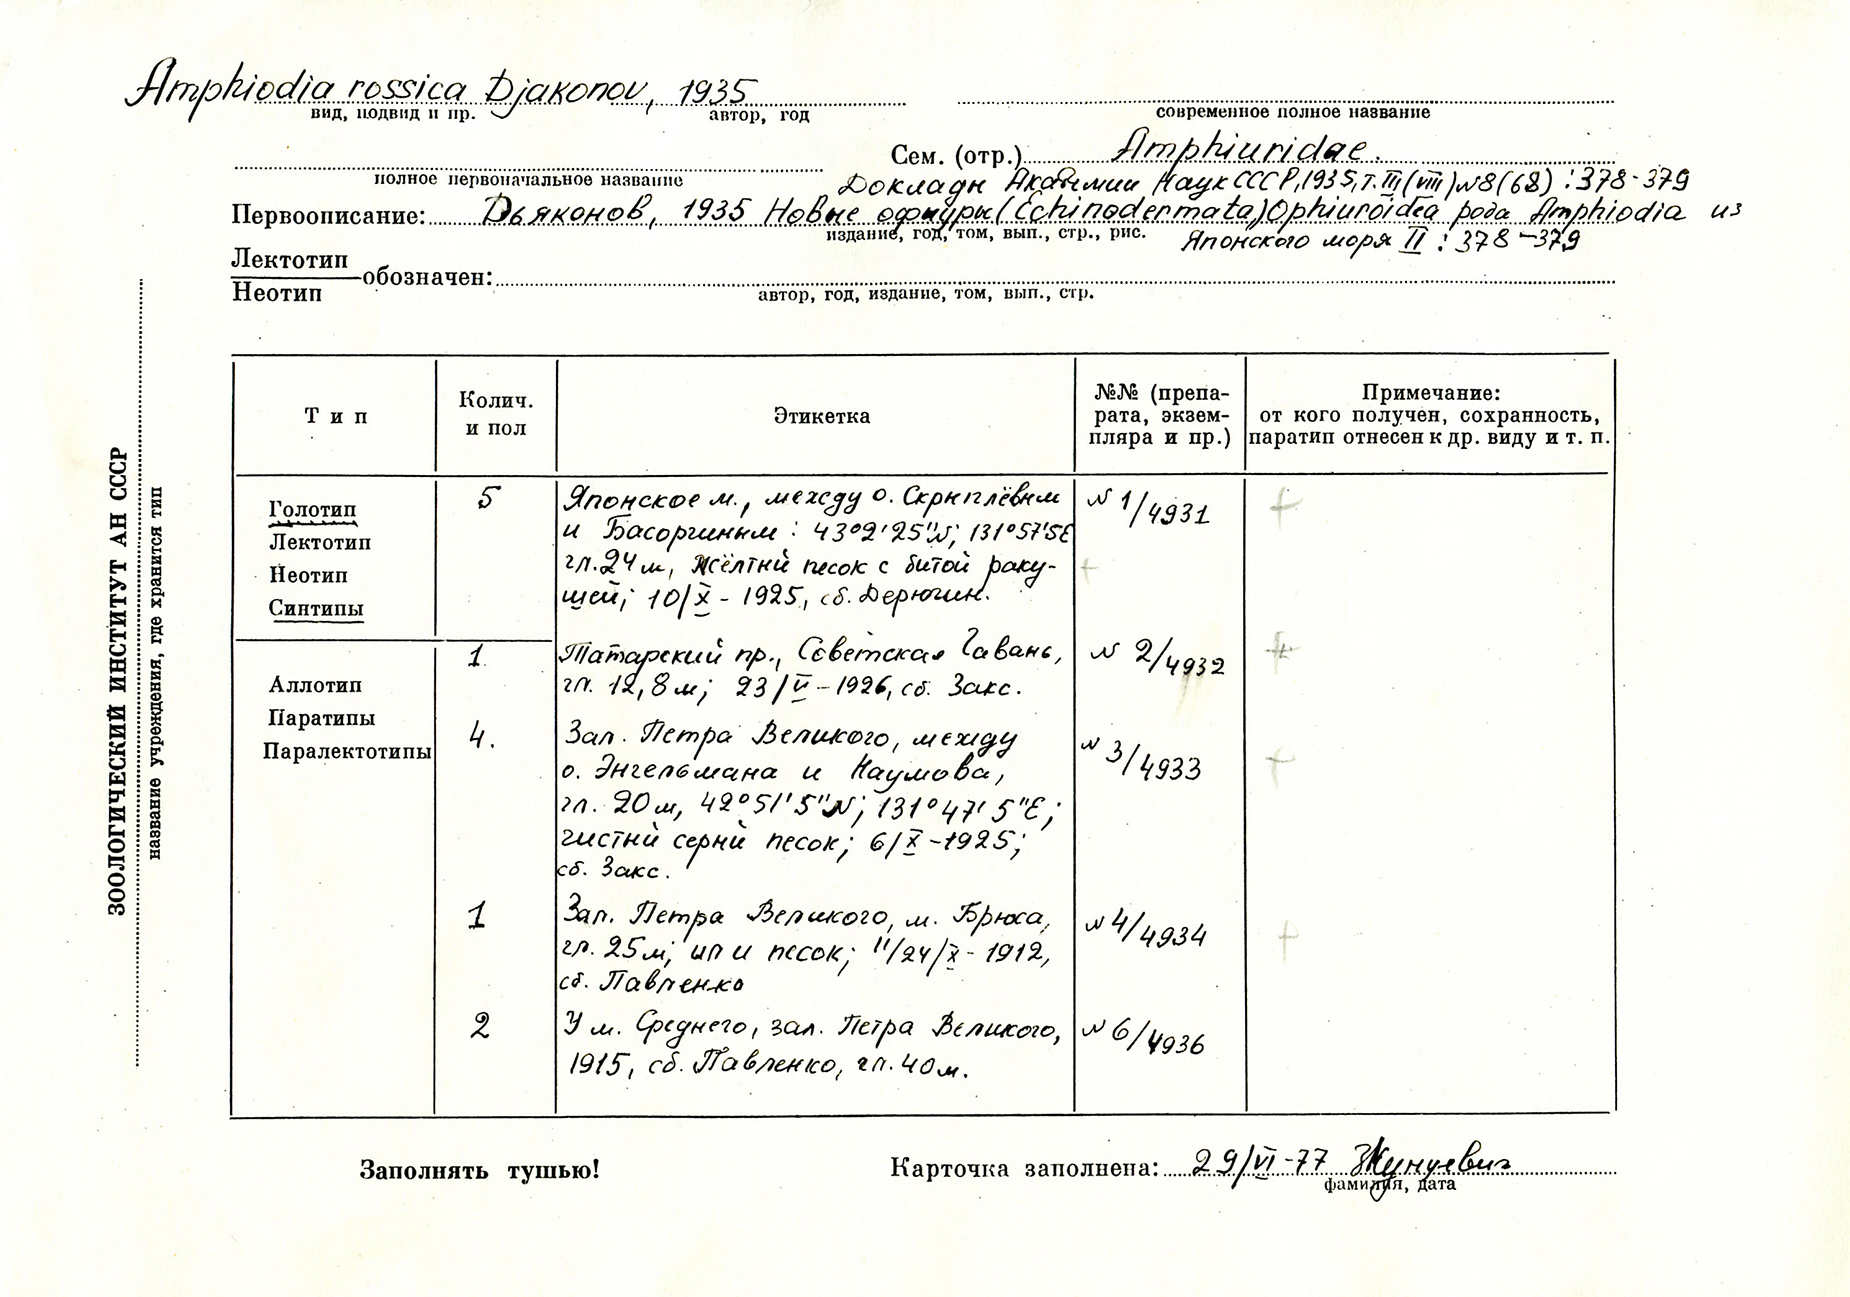 Amphiodia rossica Djakonov, 1935
вид, подвид и пр. автор, год
современное полное название
Сем. (отр.) Amphiuridae.
полное первоначальное название
Доклады Академии Наук СССР, 1935, т. III (VIII) N8 (68) : 378-379
Первоописание: Дьяконов, 1935 Новые офиуры (Echinodermata, Ophiuroidea рода Amphiodia из
издание, год, том, вып., стр., рис.
Японского моря II : 378-379
Лектотип
Неотип
обозначен:
автор, год, издание, том, вып., стр.
ЗООЛОГИЧЕСКИЙ ИНСТИТУТ АН СССР
название учреждения, где хранится тип
Тип
Колич. и пол
Этикетка
№№ (препа-
рата, экзем-
пляра и пр.)
Примечание:
от кого получен, сохранность,
паратип отнесен к др. виду и т. п.
Голотип
Лектотип
Неотип
Синтипы
5
Японское м., между о. Скрыплёвым
и Басоргиным : 43°2'25"N; 131°57'5E
гл. 24 м, жёлтый песок с битой раку-
шей; 10/X - 1925, сб. Дерюгин.
N 1/4931
+
+
Аллотип
Паратипы
Паралектотипы
1
Татарский пр., Советская Гавань,
гл. 12,8 м; 23/VI - 1926, сб. Закс.
N 2/4932
+
4.
Зал. Петра Великого, между
о. Энгельмана и Наумова,
гл. 20 м, 42°51'5"N; 131°47'5"E;
чистый серый песок; 6/X - 1925;
сб. Закс.
N 3/4933
+
1
Зал. Петра Великого, м. Брюса,
гл. 25 м; ил и песок; 11/24/X - 1912,
сб. Павленко
N 4/4934
+
2
У м. Среднего, зал. Петра Великого,
1915, сб. Павленко, гл. 40 м.
N 6/4936
Заполнять тушью!
Карточка заполнена: 29/VI-77
фамилия, дата